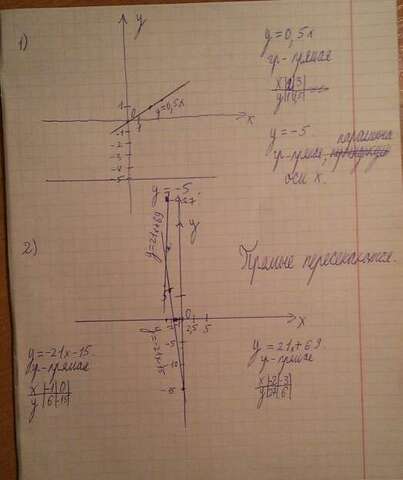 1)
y
y=0,5x
1
0
1
x
-1
-2
-3
-4
-5
y=-5
y=0,5x
гр-прямая
y=-5.
гр-прямая, параллельна
оси x.
2)
y
y=21x+69
Прямые пересекаются.
0
2,5
5
x
-5
-10
-15
y=-21x-15.
гр-прямая
x|-1|0|
y|6|-15|
y=21x+69.
гр-прямая
x|-2|-3|
y|27|6|